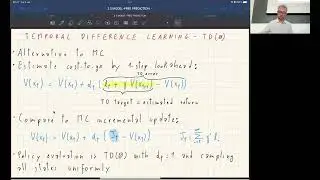 2.5 MODEL-FREE PREDICTION
TEMPORAL DIFFERENCE LEARNING - TD(0)
• Alternative to MC
• Estimate cost-to-go by 1-step lookahead:
TD error
V(x_t) = V(x_t) + α_t (l_t + γ V(x_{t+1}) - V(x_t))
TD target = estimated return
• Compare to MC incremental update:
V(x_t) = V(x_t) + α_t (J_t - V(x_t))
• Policy evaluation is TD(0) with α_t = 1 and sampling
all states uniformly